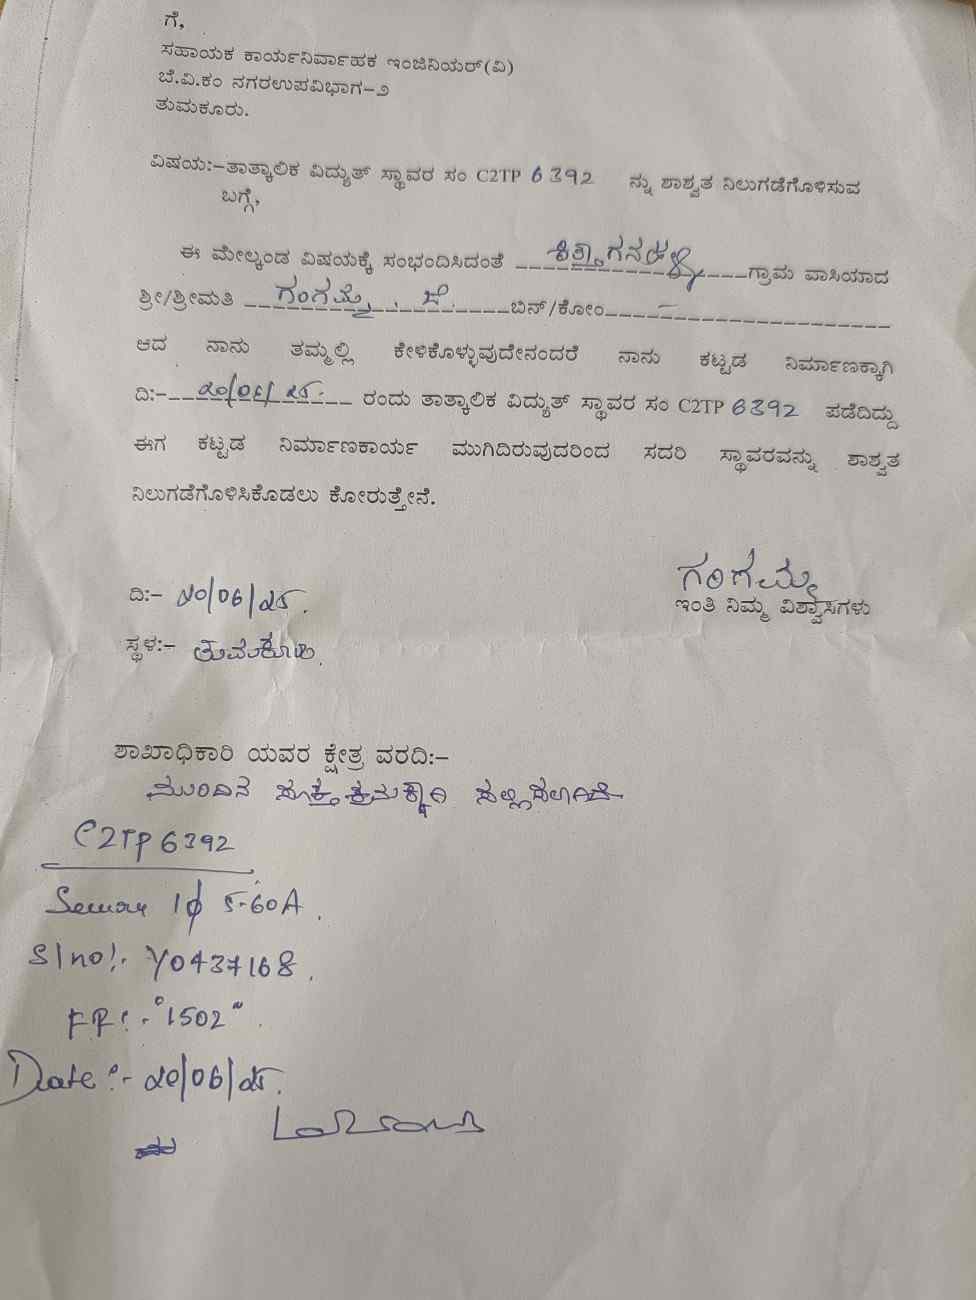 ಗೆ,
ಸಹಾಯಕ ಕಾರ್ಯನಿರ್ವಾಹಕ ಇಂಜಿನಿಯರ್(ವಿ)
ಬೆ.ವಿ.ಕಂ ನಗರಉಪವಿಭಾಗ-೨
ತುಮಕೂರು.
ವಿಷಯ:-ತಾತ್ಕಾಲಿಕ ವಿದ್ಯುತ್ ಸ್ಥಾವರ ಸಂ C2TP 6392 ನ್ನು ಶಾಶ್ವತ ನಿಲುಗಡೆಗೊಳಿಸುವ
ಬಗ್ಗೆ,
ಈ ಮೇಲ್ಕಂಡ ವಿಷಯಕ್ಕೆ ಸಂಭಂದಿಸಿದಂತೆ ಗ್ರಾಮ ವಾಸಿಯಾದ
ಶ್ರೀ/ಶ್ರೀಮತಿ ಗಂಗಮ್ಮ . ಜೆ. ಬಿನ್/ಕೋಂ -
ಆದ ನಾನು ತಮ್ಮಲ್ಲಿ ಕೇಳಿಕೊಳ್ಳುವುದೇನಂದರೆ ನಾನು ಕಟ್ಟಡ ನಿರ್ಮಾಣಕ್ಕಾಗಿ
ದಿ:- 20/06/25. ರಂದು ತಾತ್ಕಾಲಿಕ ವಿದ್ಯುತ್ ಸ್ಥಾವರ ಸಂ C2TP 6392 ಪಡೆದಿದ್ದು
ಈಗ ಕಟ್ಟಡ ನಿರ್ಮಾಣಕಾರ್ಯ ಮುಗಿದಿರುವುದರಿಂದ ಸದರಿ ಸ್ಥಾವರವನ್ನು ಶಾಶ್ವತ
ನಿಲುಗಡೆಗೊಳಿಸಿಕೊಡಲು ಕೋರುತ್ತೇನೆ.
ಗಂಗಮ್ಮ
ದಿ:- 20/06/25.
ಇಂತಿ ನಿಮ್ಮ ವಿಶ್ವಾಸಿಗಳು
ಸ್ಥಳ:- ತುಮಕೂರು.
ಶಾಖಾಧಿಕಾರಿ ಯವರ ಕ್ಷೇತ್ರ ವರದಿ:-
ಮುಂದಿನ ಸೂಕ್ತ ಕ್ರಮಕ್ಕಾಗಿ ಸಲ್ಲಿಸಲಾಗಿದೆ
C2TP 6392
1ϕ 5-60A.
Sl no:- Y0437168.
FR:- "1502".
Date:- 20/06/25.